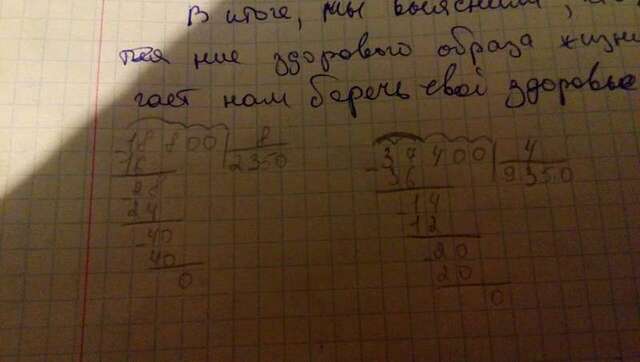 В итоге, мы выяснили,
ние здорового образа жизни
гает нам беречь свой здоровье
-18 800 | 8
16 2350
-28
24
-40
40
0
-37 400 | 4
36 9350
-14
12
-20
20
0